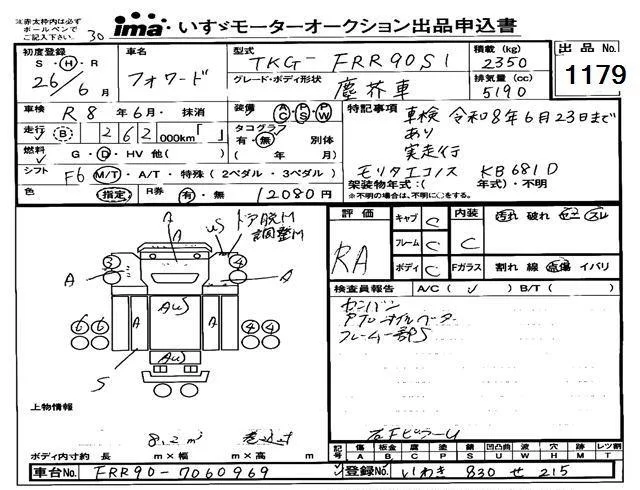 ※赤太枠内は必ず
ボールペンで
ご記入下さい。
30
ima いすゞモーターオークション出品申込書
初度登録 車名 型式 TKG-FRR90S1 積載(kg) 2350 出品No.
S・H・R 26/6月 フォワード グレード・ボディ形状 塵芥車 排気量(cc) 5190 1179
車検 R 8年6月・抹消 装備 AC PS PW 特記事項 車検 令和8年6月23日まで
あり
走行 B 262 000km「 」 タコグラフ 有・無 別体 実走行
燃料 G・D・HV 他( ) ( 年 月)
シフト F6 M/T・A/T・特殊(2ペダル・3ペダル) モリタエコノス KB681D
架装物年式:( 年式)・不明
※不明の場合は、不明に○をする。
色 指定 R券 有・無 12080円
ドア脱M
調整M
uS
A A
3 4
A A
4
AuS
A A
6 6 4 4
AuS
S
評価 RA
キャブ C 内装 C 汚れ 破れ
フレーム C
ボディ C Fガラス 割れ 線 点傷 イバリ
検査員報告 A/C( ✓ ) B/T( )
カンバン
フレーム一部S
右FピラーU
上物情報
8.2m³ 巻込式
ボディ内寸約 長 m×幅 m×高 m
記号 傷 板金 凹 塗 錆 凹凸曲 波 穴 跡 レツ割
A B C P S U W H M T
車台No. FRR90-7060969
登録No. いわき 830 せ 215